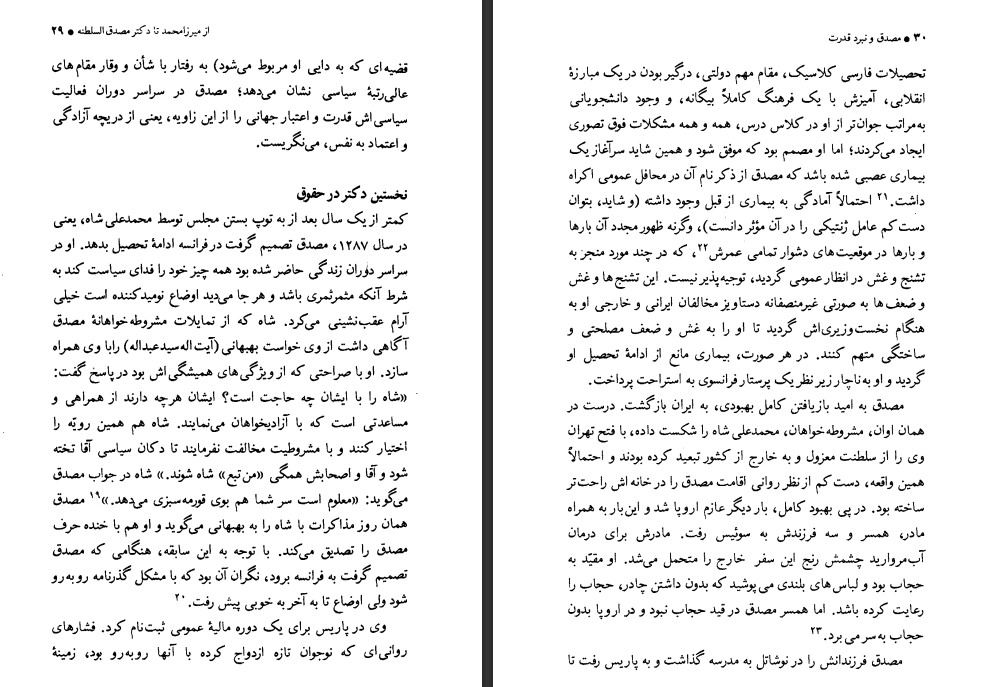 از میرزامحمد تا دکتر مصدق‌السلطنه ● ۲۹
قضیه‌ای که به دایی او مربوط می‌شود) به رفتار با شأن و وقار مقام‌های
عالی‌رتبهٔ سیاسی نشان می‌دهد؛ مصدق در سراسر دوران فعالیت
سیاسی‌اش قدرت و اعتبار جهانی را از این زاویه، یعنی از دریچه آزادگی
و اعتماد به نفس، می‌نگریست.
نخستین دکتر در حقوق
کمتر از یک سال بعد از به توپ بستن مجلس توسط محمدعلی شاه، یعنی
در سال ۱۲۸۷، مصدق تصمیم گرفت در فرانسه ادامهٔ تحصیل بدهد. او در
سراسر دوران زندگی حاضر شده بود همه چیز خود را فدای سیاست کند به
شرط آنکه مثمرثمری باشد و هر جا می‌دید اوضاع نومیدکننده است خیلی
آرام عقب‌نشینی می‌کرد. شاه که از تمایلات مشروطه‌خواهانهٔ مصدق
آگاهی داشت از وی خواست بهبهانی (آیت‌اله سیدعبداله) را با وی همراه
سازد. او با صراحتی که از ویژگی‌های همیشگی‌اش بود در پاسخ گفت:
«شاه را با ایشان چه حاجت است؟ ایشان هرچه دارند از همراهی و
مساعدتی است که با آزادیخواهان می‌نمایند. شاه هم همین رویّه را
اختیار کنند و با مشروطیت مخالفت نفرمایند تا دکان سیاسی آقا تخته
شود و آقا و اصحابش همگی «من تبع» شاه شوند.» شاه در جواب مصدق
می‌گوید: «معلوم است سر شما هم بوی قورمه‌سبزی می‌دهد.»۱۹ مصدق
همان روز مذاکرات با شاه را به بهبهانی می‌گوید و او هم با خنده حرف
مصدق را تصدیق می‌کند. با توجه به این سابقه، هنگامی که مصدق
تصمیم گرفت به فرانسه برود، نگران آن بود که با مشکل گذرنامه روبه‌رو
شود ولی اوضاع تا به آخر به خوبی پیش رفت.۲۰
وی در پاریس برای یک دوره مالیهٔ عمومی ثبت‌نام کرد. فشارهای
روانی‌ای که نوجوان تازه ازدواج کرده با آنها روبه‌رو بود، زمینهٔ
۳۰ ● مصدق و نبرد قدرت
تحصیلات فارسی کلاسیک، مقام مهم دولتی، درگیر بودن در یک مبارزهٔ
انقلابی، آمیزش با یک فرهنگ کاملاً بیگانه، و وجود دانشجویانی
به‌مراتب جوان‌تر از او در کلاس درس، همه و همه مشکلات فوق تصوری
ایجاد می‌کردند؛ اما او مصمم بود که موفق شود و همین شاید سرآغاز یک
بیماری عصبی شده باشد که مصدق از ذکر نام آن در محافل عمومی اکراه
داشت.۲۱ احتمالاً آمادگی به بیماری از قبل وجود داشته (و شاید، بتوان
دست کم عامل ژنتیکی را در آن مؤثر دانست)، وگرنه ظهور مجدد آن بارها
و بارها در موقعیت‌های دشوار تمامی عمرش۲۲، که در چند مورد منجر به
تشنج و غش در انظار عمومی گردید، توجیه‌پذیر نیست. این تشنج‌ها و غش
و ضعف‌ها به صورتی غیرمنصفانه دستاویز مخالفان ایرانی و خارجی او به
هنگام نخست‌وزیری‌اش گردید تا او را به غش و ضعف مصلحتی و
ساختگی متهم کنند. در هر صورت، بیماری مانع از ادامهٔ تحصیل او
گردید و او به‌ناچار زیر نظر یک پرستار فرانسوی به استراحت پرداخت.
مصدق به امید بازیافتن کامل بهبودی، به ایران بازگشت. درست در
همان اوان، مشروطه‌خواهان، محمدعلی شاه را شکست داده، با فتح تهران
وی را از سلطنت معزول و به خارج از کشور تبعید کرده بودند و احتمالاً
همین واقعه، دست کم از نظر روانی اقامت مصدق را در خانه‌اش راحت‌تر
ساخته بود. در پی بهبود کامل، بار دیگر عازم اروپا شد و این‌بار به همراه
مادر، همسر و سه فرزندش به سوئیس رفت. مادرش برای درمان
آب‌مروارید چشمش رنج این سفر خارج را متحمل می‌شد. او مقیّد به
حجاب بود و لباس‌های بلندی می‌پوشید که بدون داشتن چادر، حجاب را
رعایت کرده باشد. اما همسر مصدق در قید حجاب نبود و در اروپا بدون
حجاب به‌سر می‌برد.۲۳
مصدق فرزندانش را در نوشاتل به مدرسه گذاشت و به پاریس رفت تا